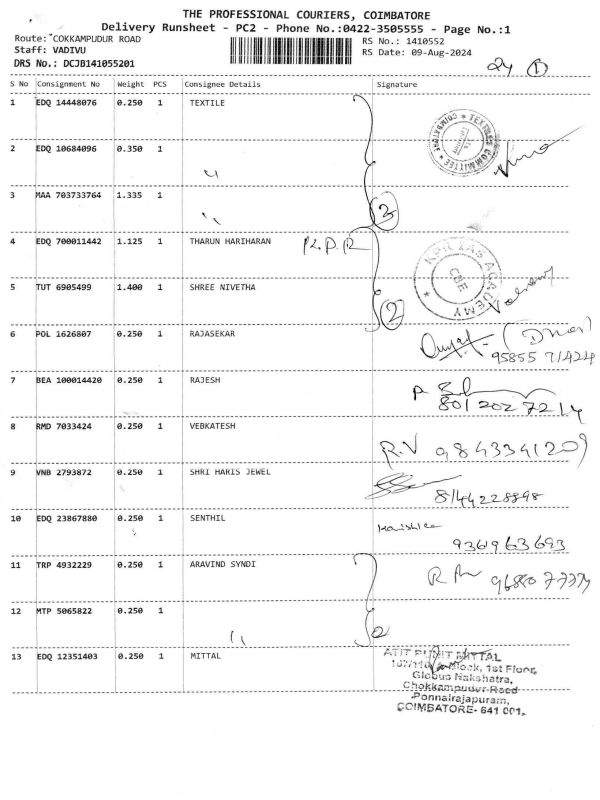 THE PROFESSIONAL COURIERS, COIMBATORE
Delivery Runsheet - PC2 - Phone No.:0422-3505555 - Page No.:1
Route: COKKAMPUDUR ROAD
RS No.: 1410552
Staff: VADIVU
RS Date: 09-Aug-2024
DRS No.: DCJB141055201
S No Consignment No Weight PCS Consignee Details Signature
1 EDQ 14448076 0.250 1 TEXTILE
TEXTILES COMMITTEE * COIMBATORE *
2 EDQ 10684096 0.350 1
3 MAA 703733764 1.335 1
3
4 EDQ 700011442 1.125 1 THARUN HARIHARAN K.P.R
KPR IAS ACADEMY * CBE
5 TUT 6905499 1.400 1 SHREE NIVETHA
2
6 POL 1626807 0.250 1 RAJASEKAR
95855 71424
7 BEA 100014420 0.250 1 RAJESH
801 202 7214
8 RMD 7033424 0.250 1 VEBKATESH
R.V 9843341209
9 VNB 2793872 0.250 1 SHRI HARIS JEWEL
8144228898
10 EDQ 23867880 0.250 1 SENTHIL
9361963693
11 TRP 4932229 0.250 1 ARAVIND SYNDI
12 MTP 5065822 0.250 1
2
13 EDQ 12351403 0.250 1 MITTAL
MITTAL
Block, 1st Floor,
Globus Nakshatra,
Chokkampudur Road
Ponnairajapuram,
COIMBATORE- 641 001.